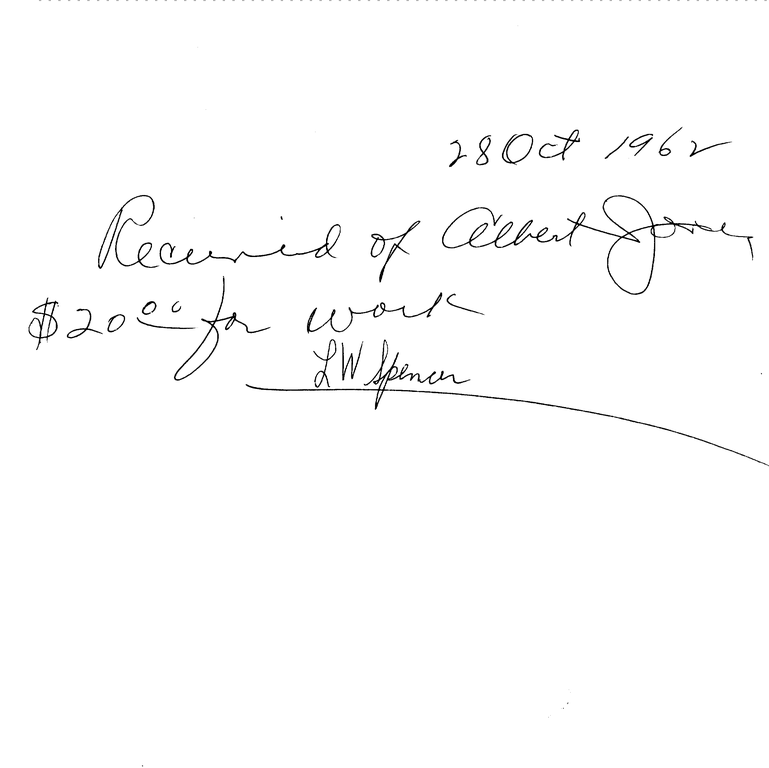 28 Oct 1962
Received of Albert Jones
$20.00 for work
LW Spencer